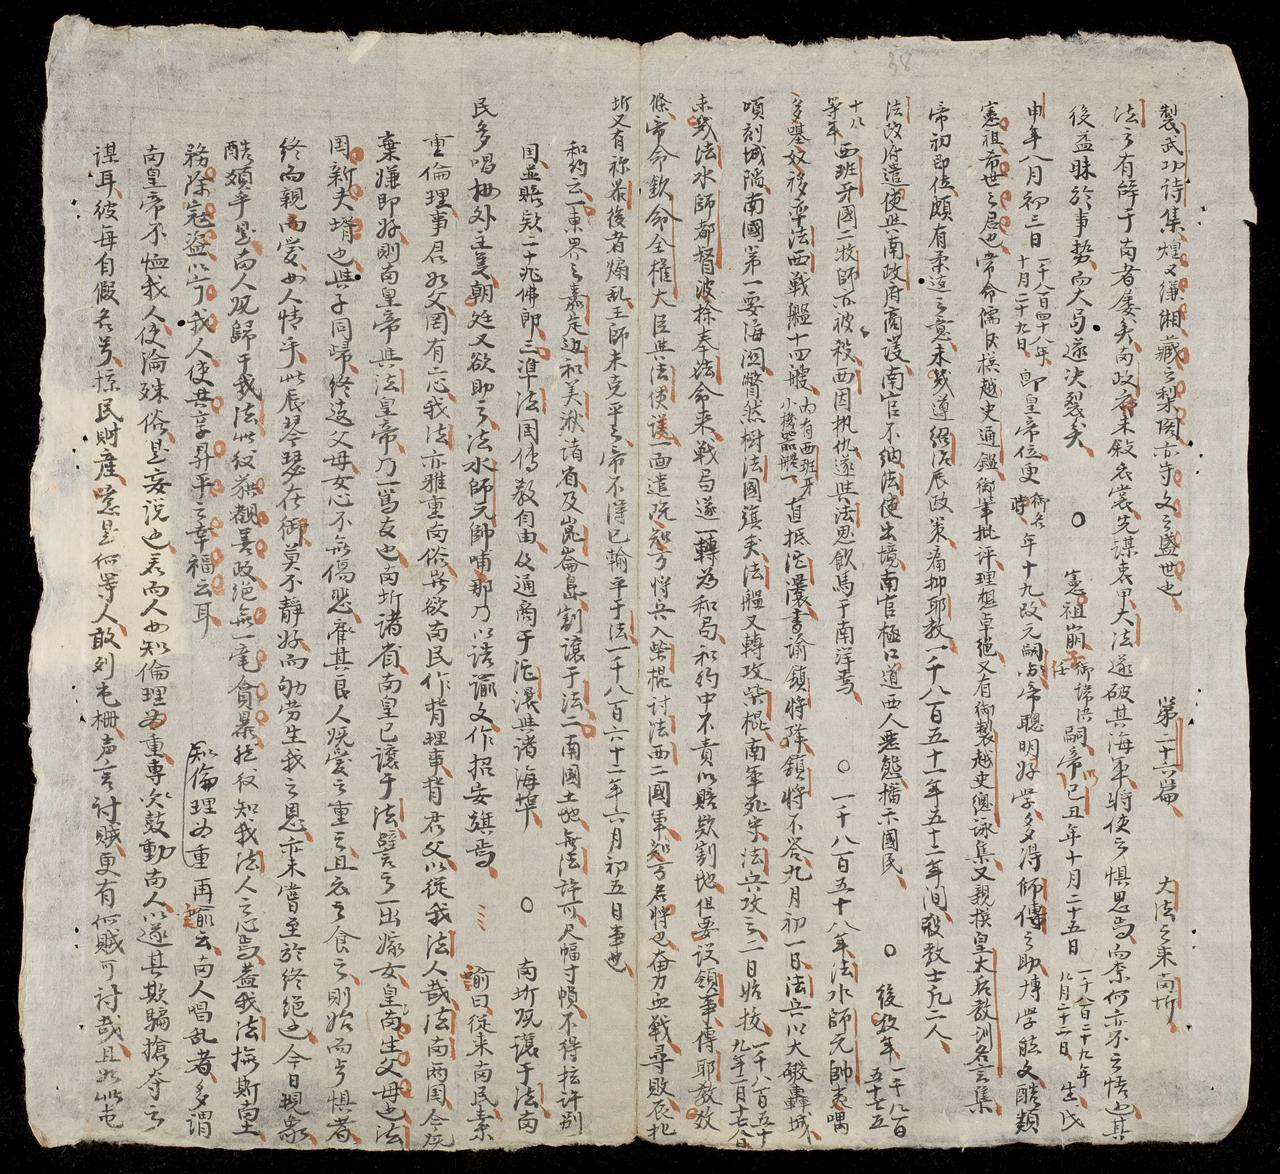 製武功詩集煌〻縹緗藏之梨閣亦守文之盛世也 第二十六篇 大法之来南圻
法之有辞于南者屡矣南政府未敍衣裳先謀衷甲大法遂破其海軍將使之惧思焉而奈何亦不之悟也其
後益昧於事势而大局遂决裂矣 ○ 憲祖崩 嗣帝已丑年十月二十五日 一千八百二十九年 生戊
申年八月初三日 一千八百四十八年 即皇帝位更 年十九改元嗣帝聰明好学多得師傅之助博学能文酷類
憲祖希世之君也常命儒臣撰越史通鑑御筆批評理想卓絶又有御製越史總詠集又親撰皇太后教訓名言集
帝初即位頗有柔遠之意未幾遵紹治辰政策痛抑耶教一千八百五十一年五十二年间殺教士凡二人
法政府遣使與南政府商議南官不納法使出境南官極口道西人悪態播示國民 ○ 後数年 一千八百五十七五
十八等年 西班牙國二牧師亦被殺西因执仇遂與法思飲馬于南洋焉 ○ 一千八百五十八年法水師元帥
移率法西戰艦十四艘 内有西班牙小機器船一 直抵沱灢書谕鎮將降鎮將不答九月初一日法兵以大礮轟城
頃刻城陷南國第一要海沼瞥然樹法國旗矣法艦又轉攻柴棍南軍死守法兵攻之二日始拔 一千八百五十九年二月十七八日
未幾法水師都督波捺奉法命来戰局遂一轉為和局和約中不責以賠欵割地但要设領事傳耶教效
條帝命欽命全權大臣與法便議一面遣阮知方將兵入柴棍討法西二國軍知方名將也奋力血戰尋敗辰北
圻又有祢黎後者煽乱王師未克平之帝不得已输平于法一千八百六十二年六月初五日事也
和約云一東界之嘉定边和美湫诸省及崑崙島割讓于法二南國土地無法許可尺幅寸幀不得㧞許别
國並賠欵二十兆佛郎三準法国傳教自由及通商于沱灢與諸海埠 ○ 南圻既讓于法南
民多唱 外主美朝廷又欲助之法水師元帥哺那乃以诰諭文作招安旗焉 諭曰從来南民素
重倫理事君如父罔有二心我法亦雅重南俗豈欲南民作背理事背君父以從我法人哉法南两国今废
棄嫌即好則南皇帝與法皇帝乃一篤友也南圻诸省南皇已讓于法譬之一出嫁女皇南生父母也法
国新夫壻也與子同歸終远父母女心不無傷悲 其良人既愛之重之且衣之食之則始而兮惧者
終而親而愛也人情乎此辰琴瑟在御莫不靜好而劬劳生我之恩亦未嘗至於終绝也今日現象
酷類乎是南人既歸于我法此後 觀善政絕無一毫貪暴然後知我法人之心焉蓋我法撫斯南土
務除寇盗以宁我人使其享昇平之幸福云耳 知倫理为重 再諭云南人唱乱者多謂
南皇帝不恤我人使淪殊俗是妄说也若而人也知倫理为重專欠鼓動南人以遂其欺騙搶夺之
謀耳彼每自假名号掠民財産噫是何等人敢列屯柵声言讨賊更有何賊可讨哉且如此屯